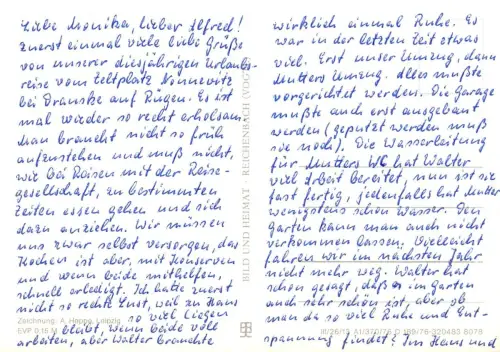 Liebe Monika, lieber Alfred!
Zuerst einmal viele liebe Grüße
von unserer diesjährigen Urlaubs-
reise vom Zeltplatz Nonnewitz
bei Dranske auf Rügen. Es ist
mal wieder so recht erholsam.
Man braucht nicht so früh
aufzustehen und muß nicht,
wie bei Reisen mit der Reise-
gesellschaft, zu bestimmten
Zeiten essen gehen und sich
dazu anziehen. Wir müssen
uns zwar selbst versorgen, das
Kochen ist aber, mit Konserven
und wenn beide mithelfen,
schnell erledigt. Ich hatte zuerst
nicht so rechte Lust, weil zu Haus
so viel liegen
bleibt, wenn beide voll
arbeiten, aber Walter brauchte
Zeichnung: A. Happe, Leipzig
EVP 0,15 M
BILD UND HEIMAT REICHENBACH (VOGTL
wirklich einmal Ruhe. Es
war in der letzten Zeit etwas
viel. Erst unser Umzug, dann
Mutters Umzug. Alles mußte
vorgerichtet werden. Die Garage
mußte auch erst ausgebaut
werden (geputzt werden muß
sie noch). Die Wasserleitung
für Mutters WC hat Walter
viel Arbeit bereitet, nun ist sie
fast fertig, jedenfalls hat Mutter
wenigstens schon Wasser. Den
Garten kann man auch nicht
verkommen lassen. Vielleicht
fahren wir im nächsten Jahr
nicht mehr weg. Walter hat
schon gesagt, daß es im Garten
auch sehr schön ist, aber ob
man da so viel Ruhe und Ent-
spannung findet? Im Haus und